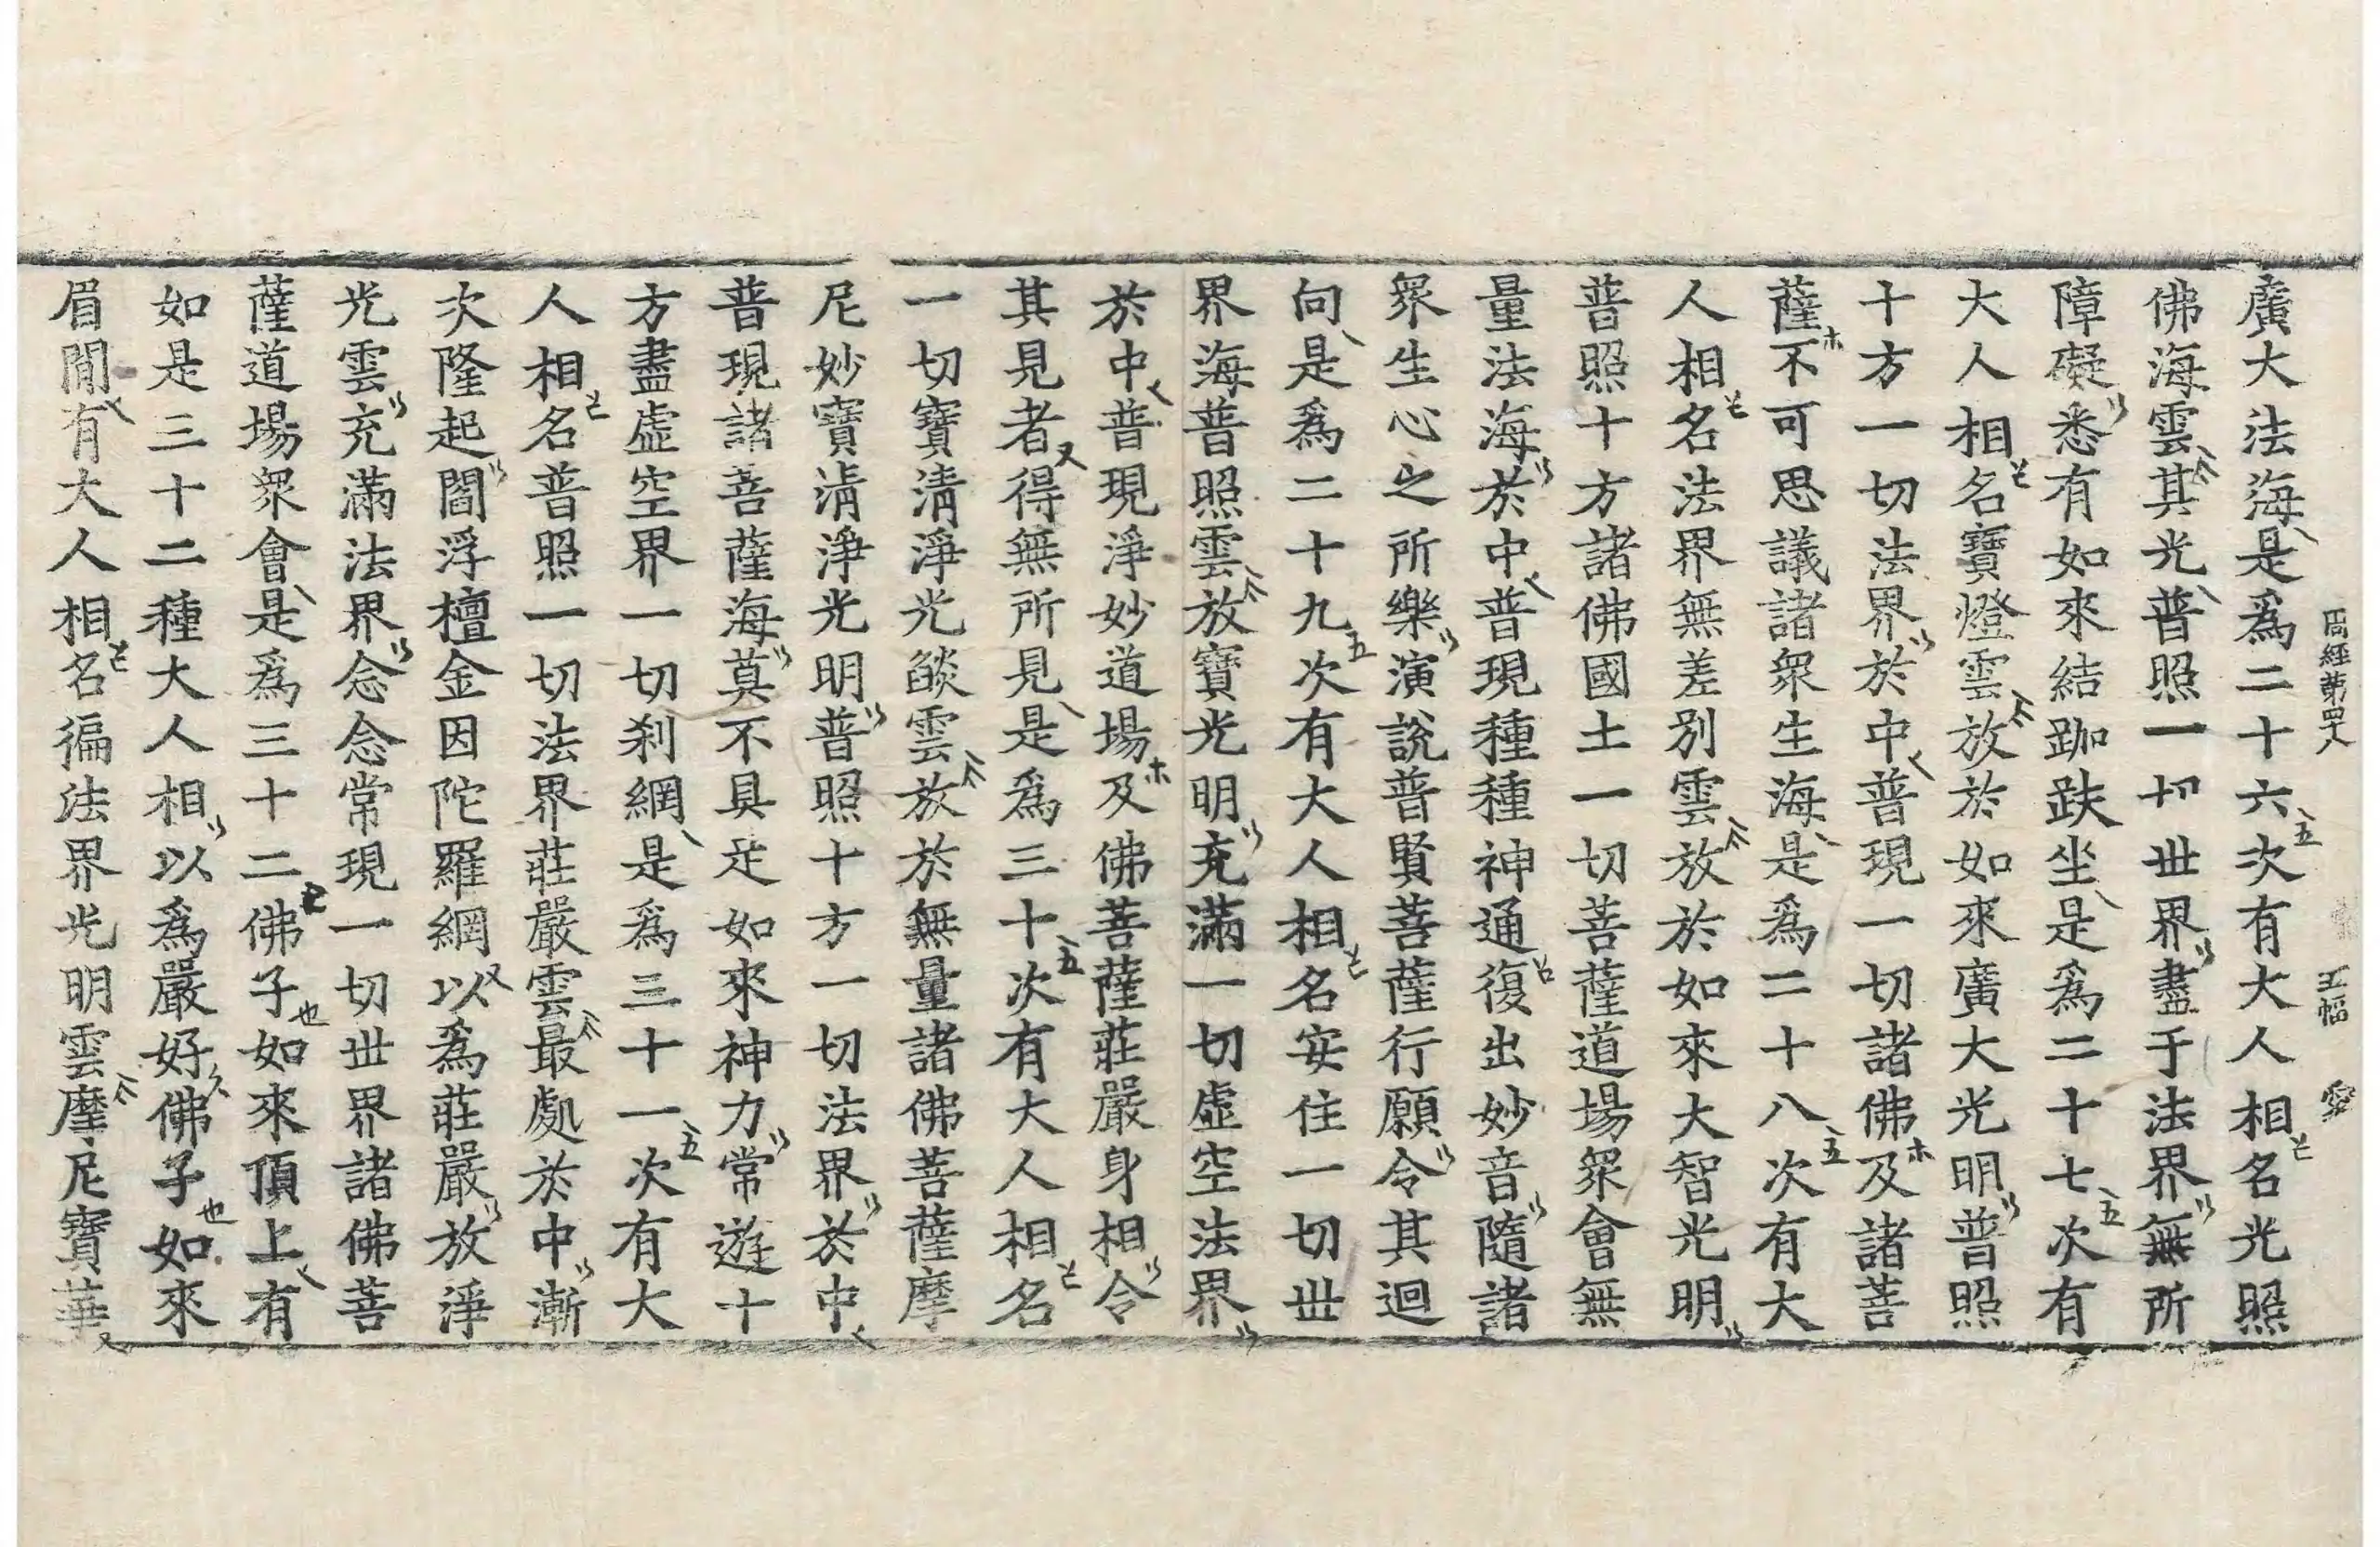 周經第四十八 五幅 愛
廣大法海是爲二十六次有大人相名光照
佛海雲其光普照一切世界盡于法界無所
障礙悉有如來結跏趺坐是爲二十七次有
大人相名寶燈雲放於如來廣大光明普照
十方一切法界於中普現一切諸佛及諸菩
薩不可思議諸衆生海是爲二十八次有大
人相名法界無差別雲放於如來大智光明
普照十方諸佛國土一切菩薩道場衆會無
量法海於中普現種種神通復出妙音隨諸
衆生心之所樂演說普賢菩薩行願令其迴
向是爲二十九次有大人相名安住一切世
界海普照雲放寶光明充滿一切虛空法界
於中普現淨妙道場及佛菩薩莊嚴身相令
其見者得無所見是爲三十次有大人相名
一切寶清淨光燄雲放於無量諸佛菩薩摩
尼妙寶清淨光明普照十方一切法界於中
普現諸菩薩海莫不具足如來神力常遊十
方盡虛空界一切刹網是爲三十一次有大
人相名普照一切法界莊嚴雲最處於中漸
次隆起閻浮檀金因陀羅網以爲莊嚴放淨
光雲充滿法界念念常現一切世界諸佛菩
薩道場衆會是爲三十二佛子如來頂上有
如是三十二種大人相以爲嚴好佛子如來
眉間有大人相名徧法界光明雲摩尼寶華